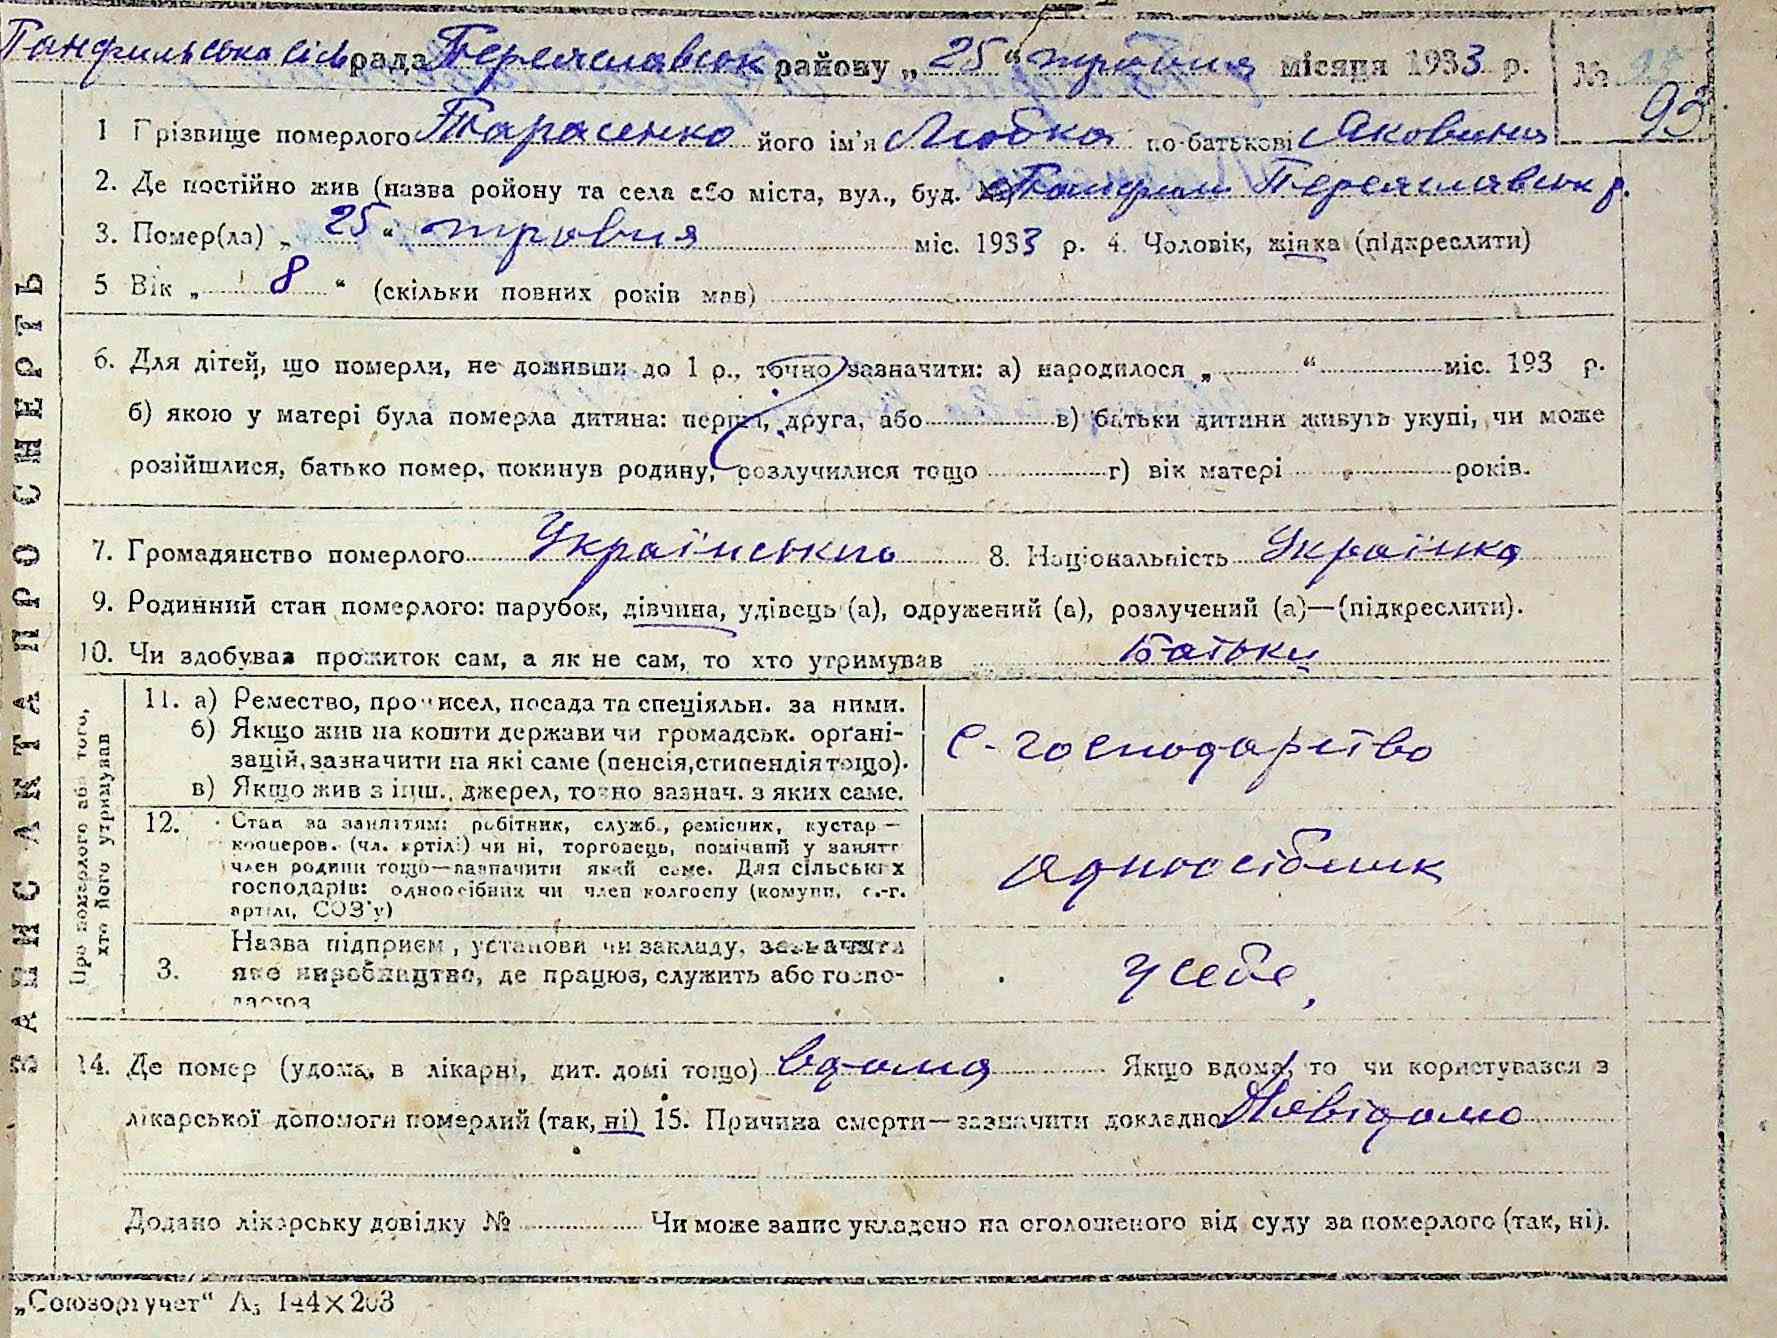 Панфильська сільрада Переяславськ району „25“ травня місяця 1933 р. № 93
1 Прізвище померлого Тарасенко його ім'я Любка по-батькові Яковина
2. Де постійно жив (назва ройону та села або міста, вул., буд. №) Панфили Переяславськ р.
3. Помер(ла) „25“ травня міс. 1933 р. 4. Чоловік, жінка (підкреслити)
5 Вік „8“ (скільки повних років мав)
6. Для дітей, що померли, не доживши до 1 р., точно зазначити: а) народилося „ “ міс. 193 р.
б) якою у матері була померла дитина: перша, друга, або в) батьки дитини живуть укупі, чи може
розійшлися, батько помер, покинув родину, розлучилися тощо г) вік матері років.
7. Громадянство померлого Українського 8. Національність Українка
9. Родинний стан померлого: парубок, дівчина, удівець (а), одружений (а), розлучений (а)—(підкреслити).
10. Чи здобував прожиток сам, а як не сам, то хто утримував Батьки
ЗАПИС АКТА ПРО СМЕРТЬ
Про померлого або того, хто його утримував
11. а) Ремество, промисел, посада та спеціяльн. за ними.
б) Якщо жив на кошти держави чи громадськ. органі-
зацій, зазначити на які саме (пенсія, стипендія тощо).
в) Якщо жив з інш. джерел, точно зазнач. з яких саме.
С-господарство
12. Стан за заняттям: робітник, служб., ремісник, кустар—
кооперов. (чл. артілі) чи ні, торговець, помічний у занятт
член родини тощо—зазначити який саме. Для сільських
господарів: одноосібник чи член колгоспу (комуни, с.-г.
артілі, СОЗ'у)
одноосібник
3. Назва підприєм, установи чи закладу, зазначити
яке виробництво, де працює, служить або госпо-
дарює
у себе,
14. Де помер (удома, в лікарні, дит. домі тощо) вдома Якщо вдома, то чи користувався з
лікарської допомоги померлий (так, ні) 15. Причина смерти—зазначити докладно Невідомо
Додано лікарську довідку № Чи може запис укладено на оголошеного від суду за померлого (так, ні).
„Союзоргучет“ А5 144×203